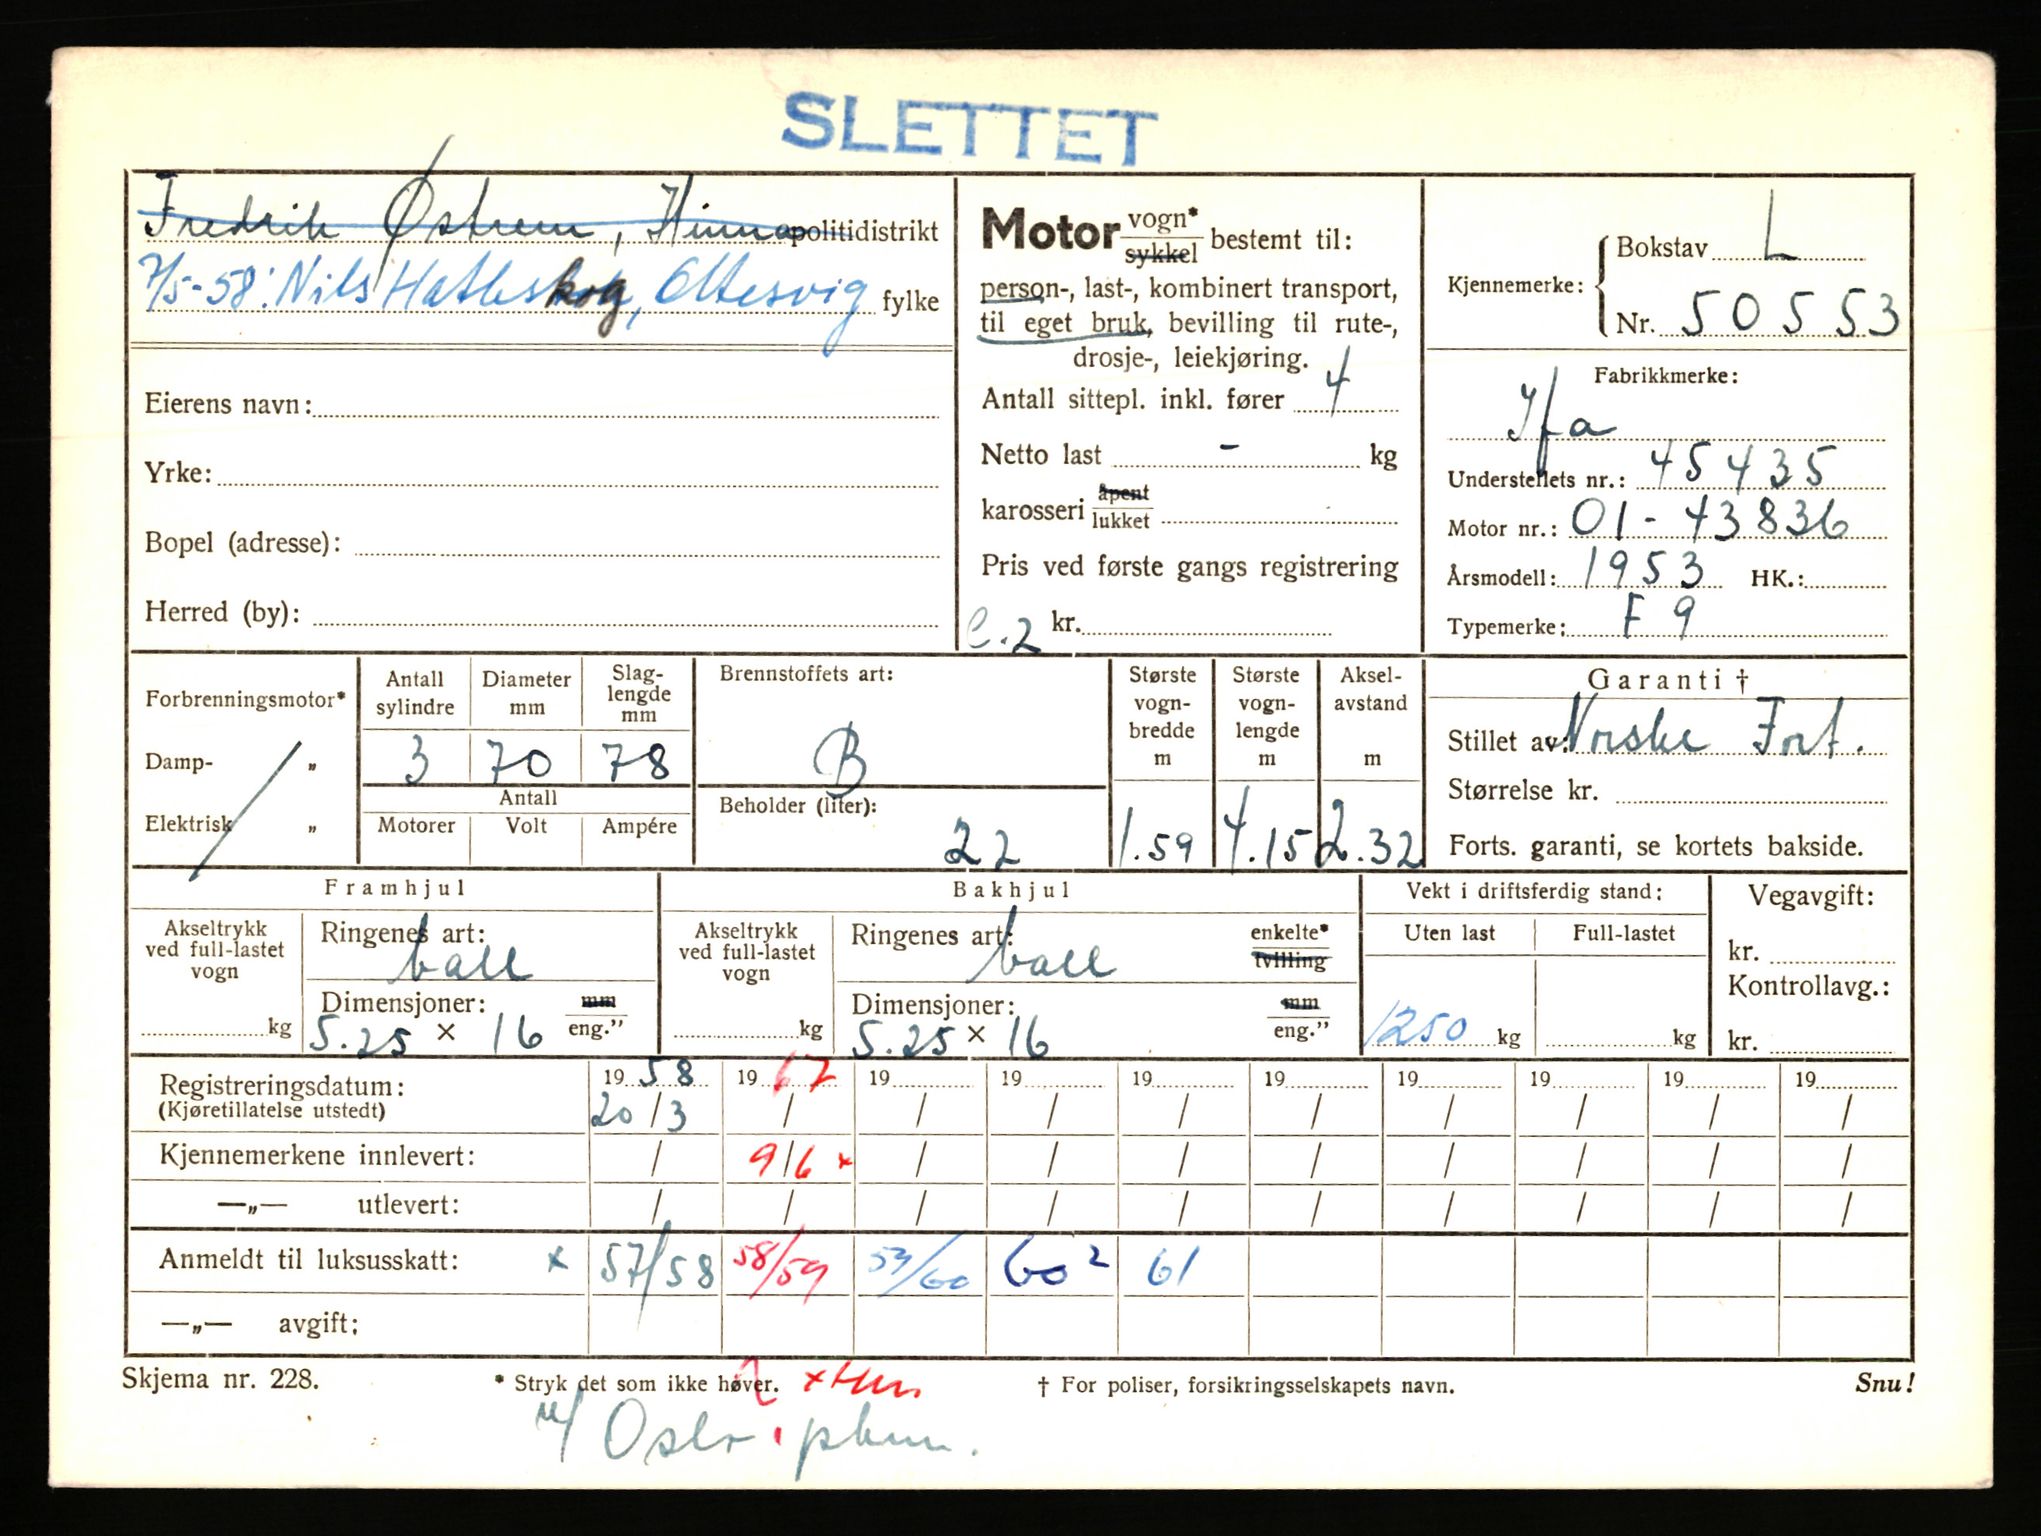 SLETTET
Fredrik Østrem, Hinna politidistrikt
7/5-58: Nils Hatleskog, Oltesvig fylke
Eierens navn:
Yrke:
Bopel (adresse):
Herred (by):
Motor vogn* sykkel bestemt til:
person-, last-, kombinert transport,
til eget bruk, bevilling til rute-,
drosje-, leiekjøring.
Antall sittepl. inkl. fører 4
Netto last - kg
karosseri åpent lukket
Pris ved første gangs registrering
e.2 kr.
Kjennemerke: Bokstav L
Nr. 50553
Fabrikkmerke:
Ifa
Understellets nr.: 45435
Motor nr.: 01-43836
Årsmodell: 1953 HK.:
Typemerke: F 9
Forbrenningsmotor*
Damp- „
Elektrisk „
Antall sylindre Diameter mm Slag-lengde mm
3 70 78
Antall
Motorer Volt Ampére
Brennstoffets art:
B
Beholder (liter):
22
Største vogn-bredde m Største vogn-lengde m Aksel-avstand m
1.59 4.15 2.32
Garanti †
Stillet av: Norske Fort.
Størrelse kr.
Forts. garanti, se kortets bakside.
Framhjul
Akseltrykk ved full-lastet vogn
kg
Ringenes art:
ball
Dimensjoner: mm
5.25 × 16 eng."
Bakhjul
Akseltrykk ved full-lastet vogn
kg
Ringenes art: enkelte*
ball tvilling
Dimensjoner: mm
5.25 × 16 eng."
Vekt i driftsferdig stand:
Uten last Full-lastet
1250 kg kg
Vegavgift:
kr.
Kontrollavg.:
kr.
Registreringsdatum: 19 58 19 67 19 19 19 19 19 19 19 19
(Kjøretillatelse utstedt) 20/3 / / / / / / / / /
Kjennemerkene innlevert: / 9/6 × / / / / / / / /
—„— utlevert: / / / / / / / / / /
Anmeldt til luksusskatt: × 57/58 58/59 59/60 60² 61
—„— avgift:
Skjema nr. 228. * Stryk det som ikke høver. † For poliser, forsikringsselskapets navn. Snu!
Oslo